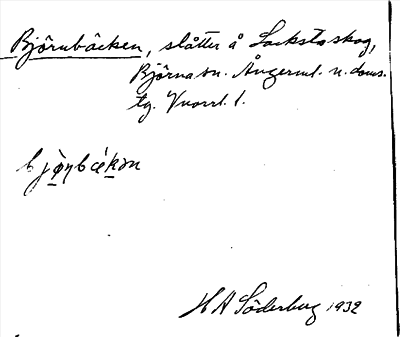 Björnbäcken, slåtter å Lockstaskog,
Björna sn. Ångerml. n. doms.
tg. Vnorrl. l.
bjò̤ṇbǽkən
H A Söderberg 1932